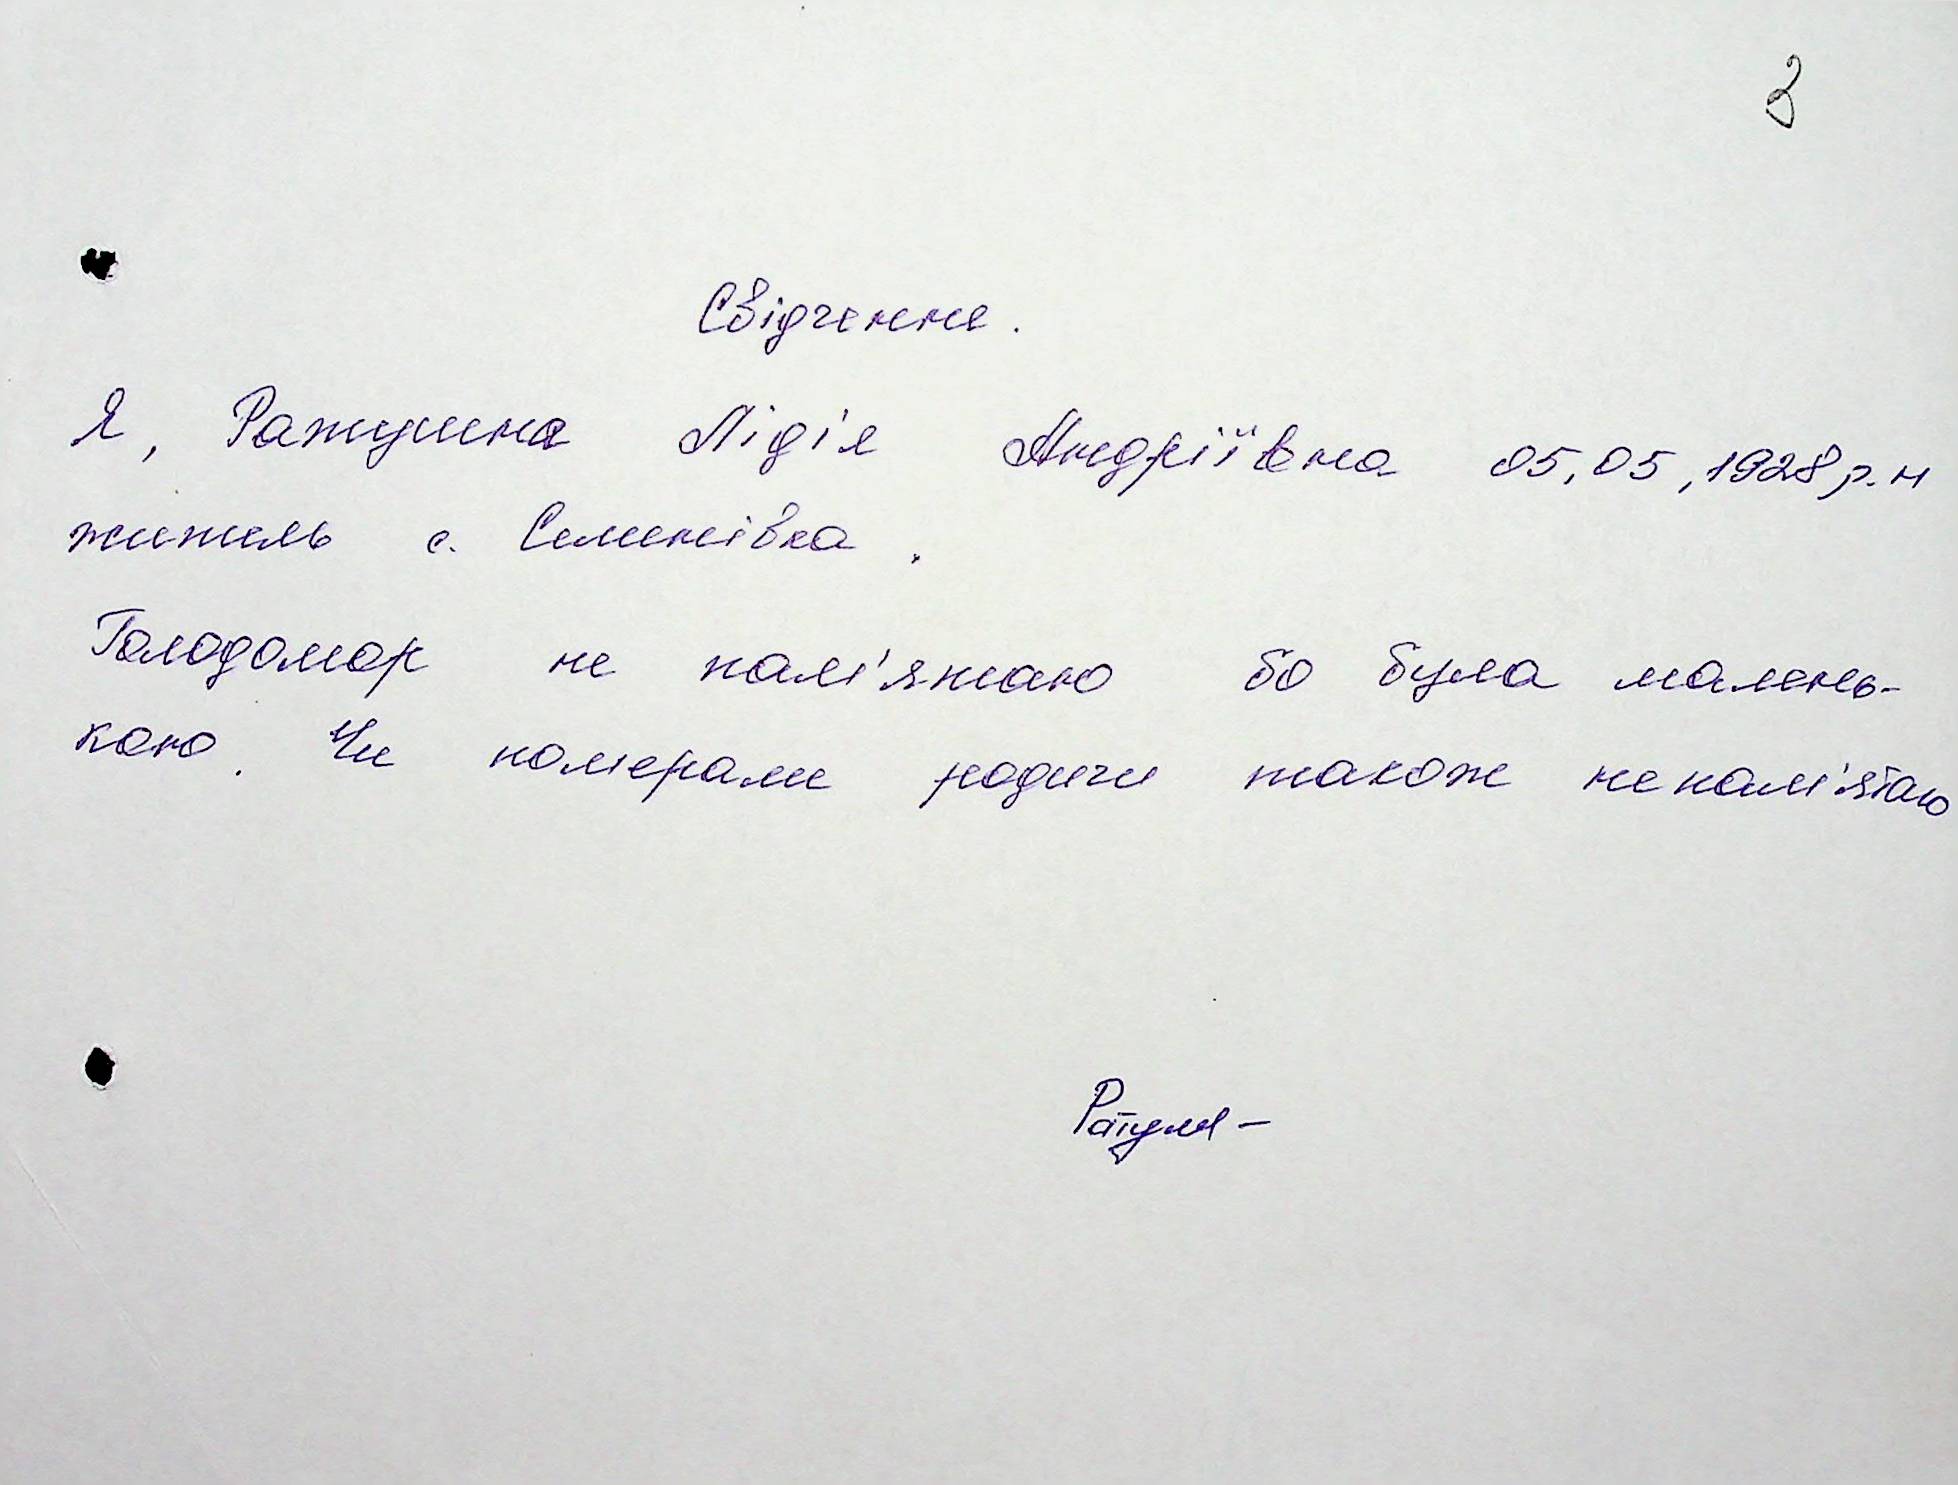 3
Свідчення.
Я, Ратушна Лідія Андріївна 05,05,1928 р.н
житель с. Семенівка.
Голодомор не пам'ятаю бо була малень-
кою. Чи померали родичи також не пам'ятаю